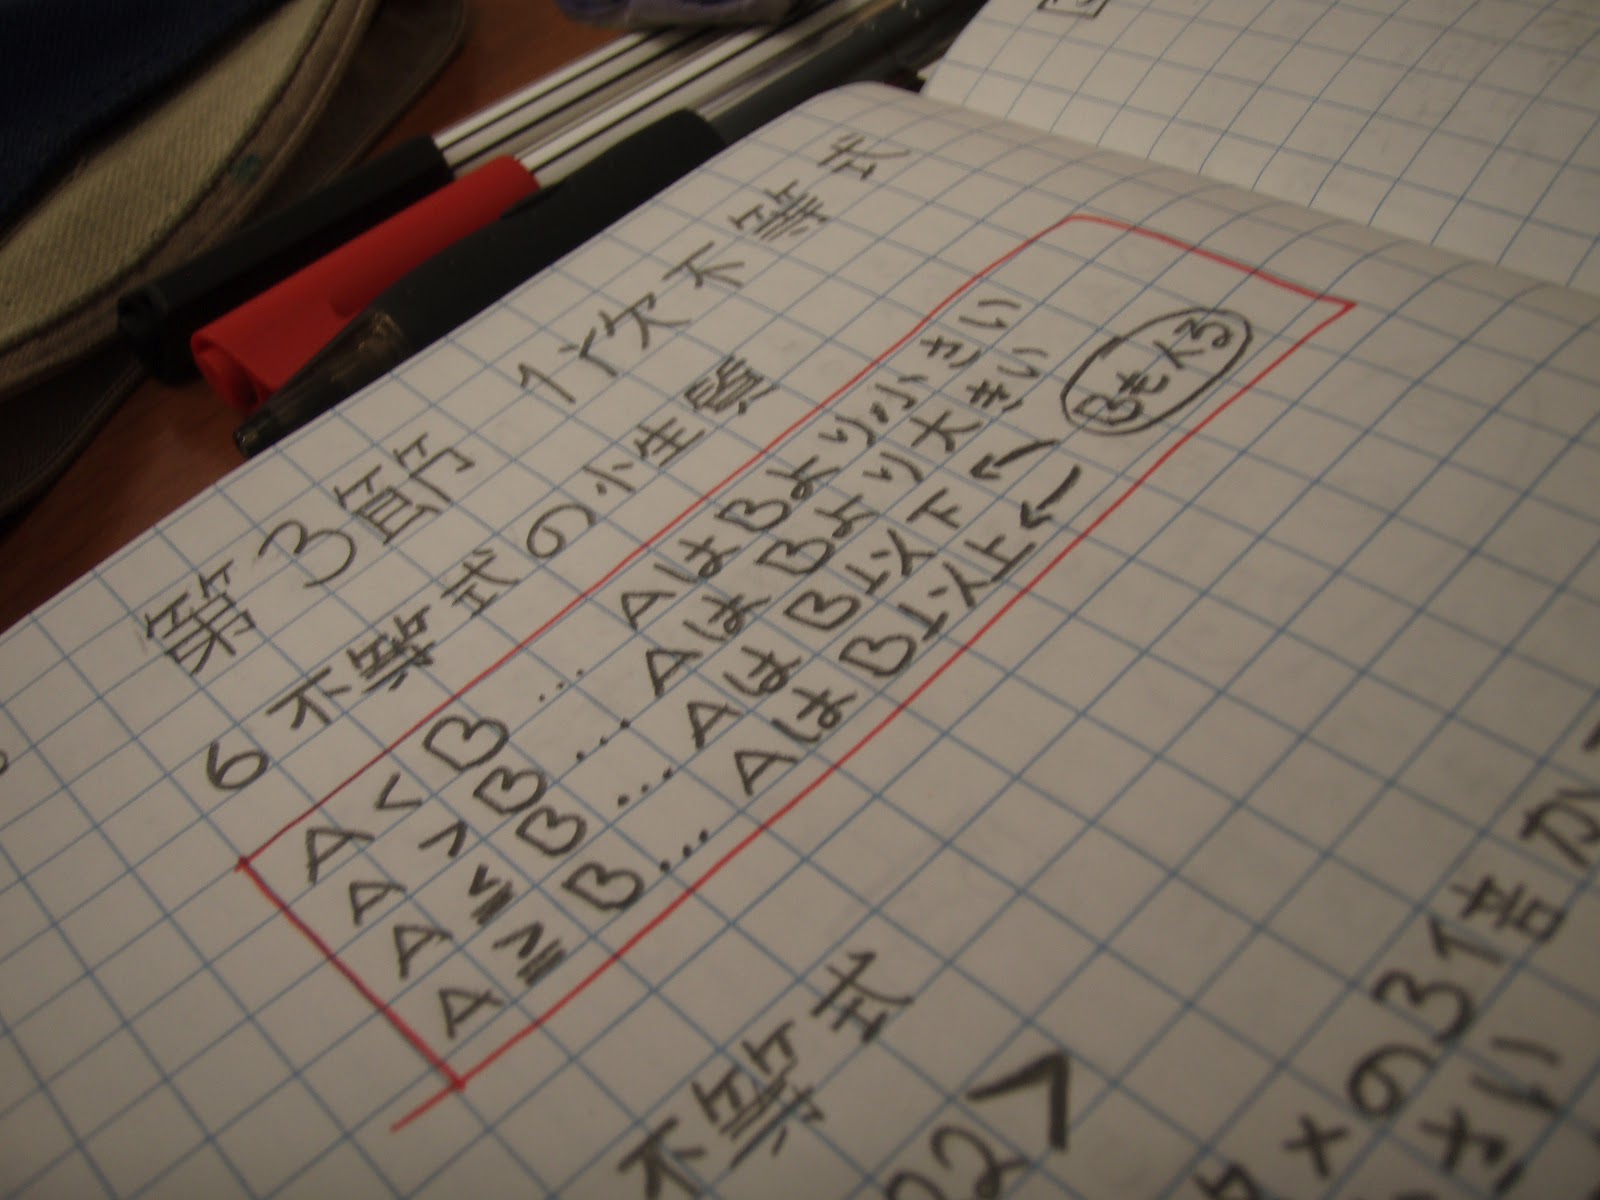 第3節 1次不等式
6 不等式の性質
A < B … AはBより小さい
A > B … AはBより大きい
A ≦ B … AはB以下 ←
A ≧ B … AはB以上 ←
Bも入る
不等式
xの3倍か
さい